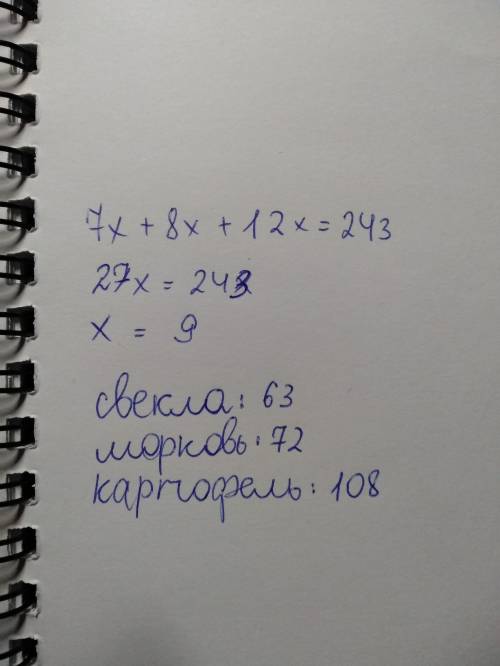 7x + 8x + 12x = 243
27x = 243
x = 9
свекла: 63
морковь: 72
картофель: 108